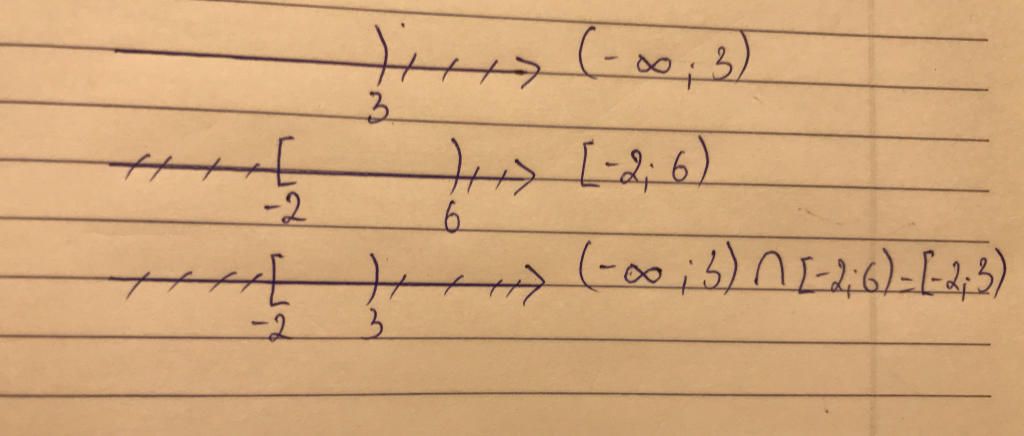 ) (-∞; 3)
3
[ ) [-2; 6)
-2 6
[ ) (-∞; 3) ∩ [-2; 6) = [-2; 3)
-2 3